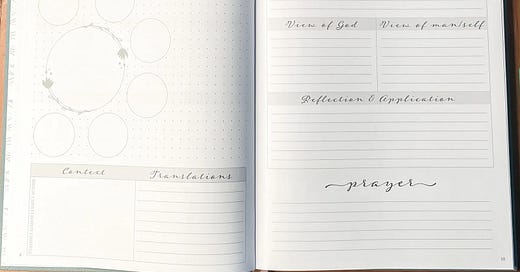 Context
Translations
View of God
View of man/self
Reflection & Application
prayer